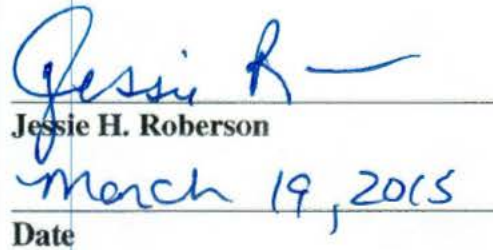 Jessie R
Jessie H. Roberson
March 19, 2015
Date